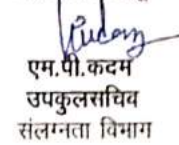 एम.पी.कदम
उपकुलसचिव
संलग्नता विभाग